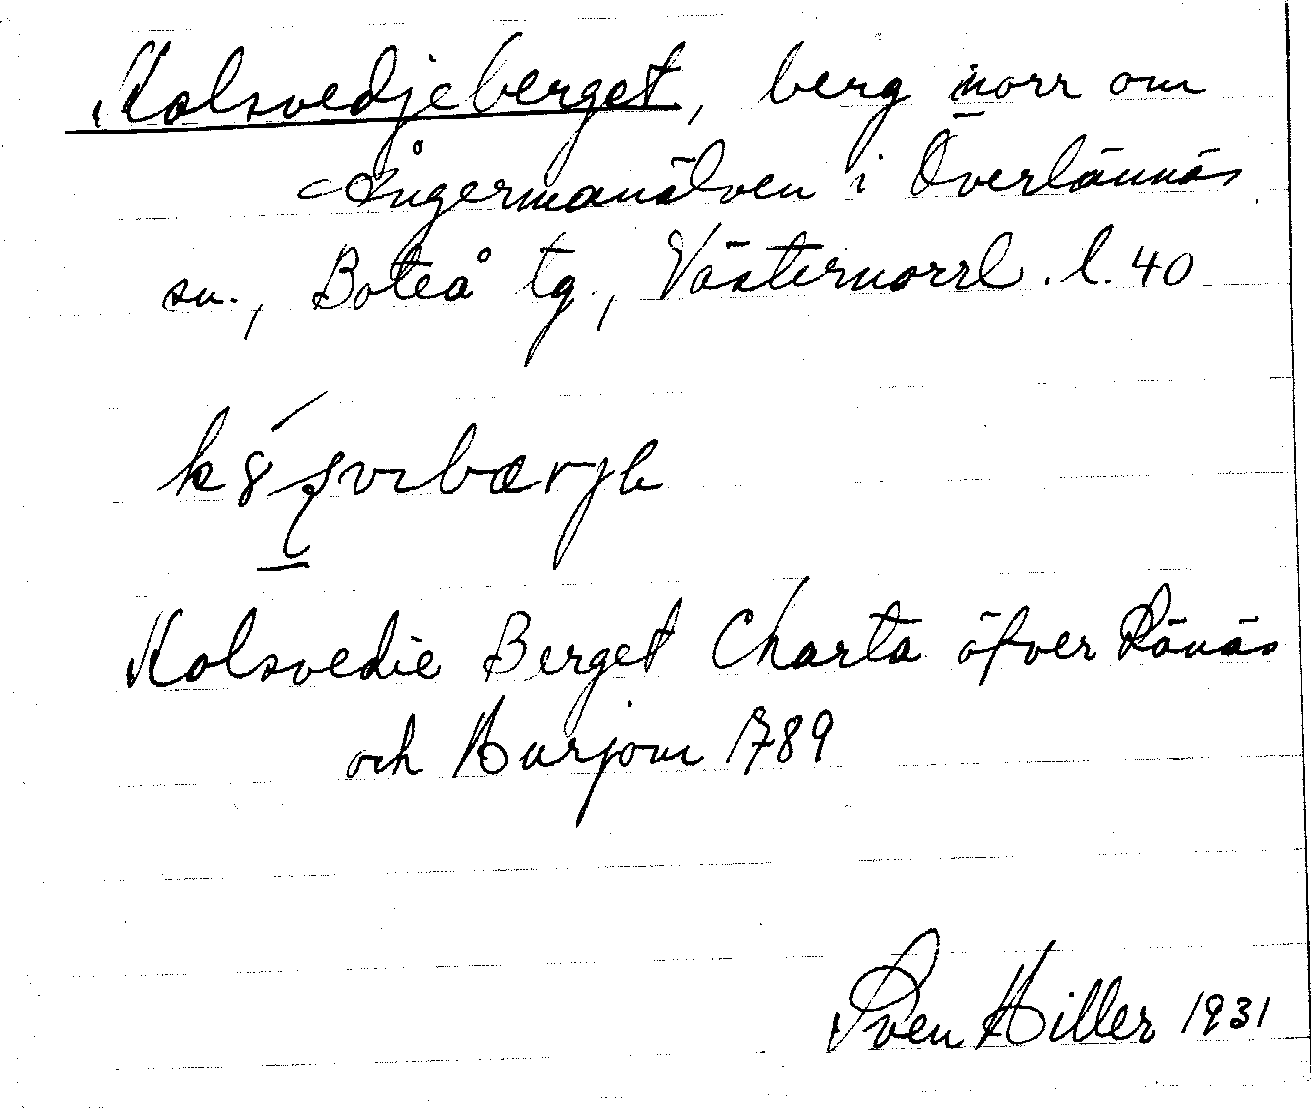 Kolsvedjeberget, berg norr om
Ångermanälven i Överlännäs
sn., Boteå tg., Västernorrl. l. 40
Kolsvedie Berget Charta öfver
och 1789
Sven Hiller 1931